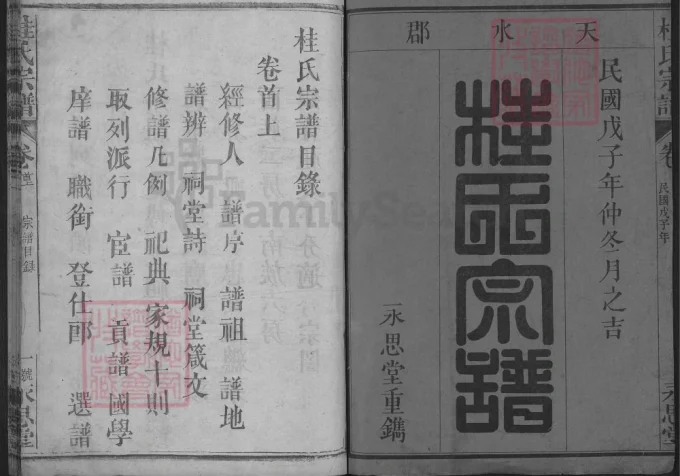 天水郡
民國戊子年仲冬月之吉
桂氏宗譜
永思堂重鐫
桂氏宗譜
卷
民國戊子年
永思堂
桂氏宗譜目錄
卷首上
經修人 譜序 譜祖 譜地
譜辨 祠堂詩 祠堂箴文
修譜凡例 祀典 家規十則
取列派行 宦譜 貢譜 國學
庠譜 職銜 登仕郎 選譜
桂氏宗譜
卷首
宗譜目錄
一號
永思堂
FamilySearch